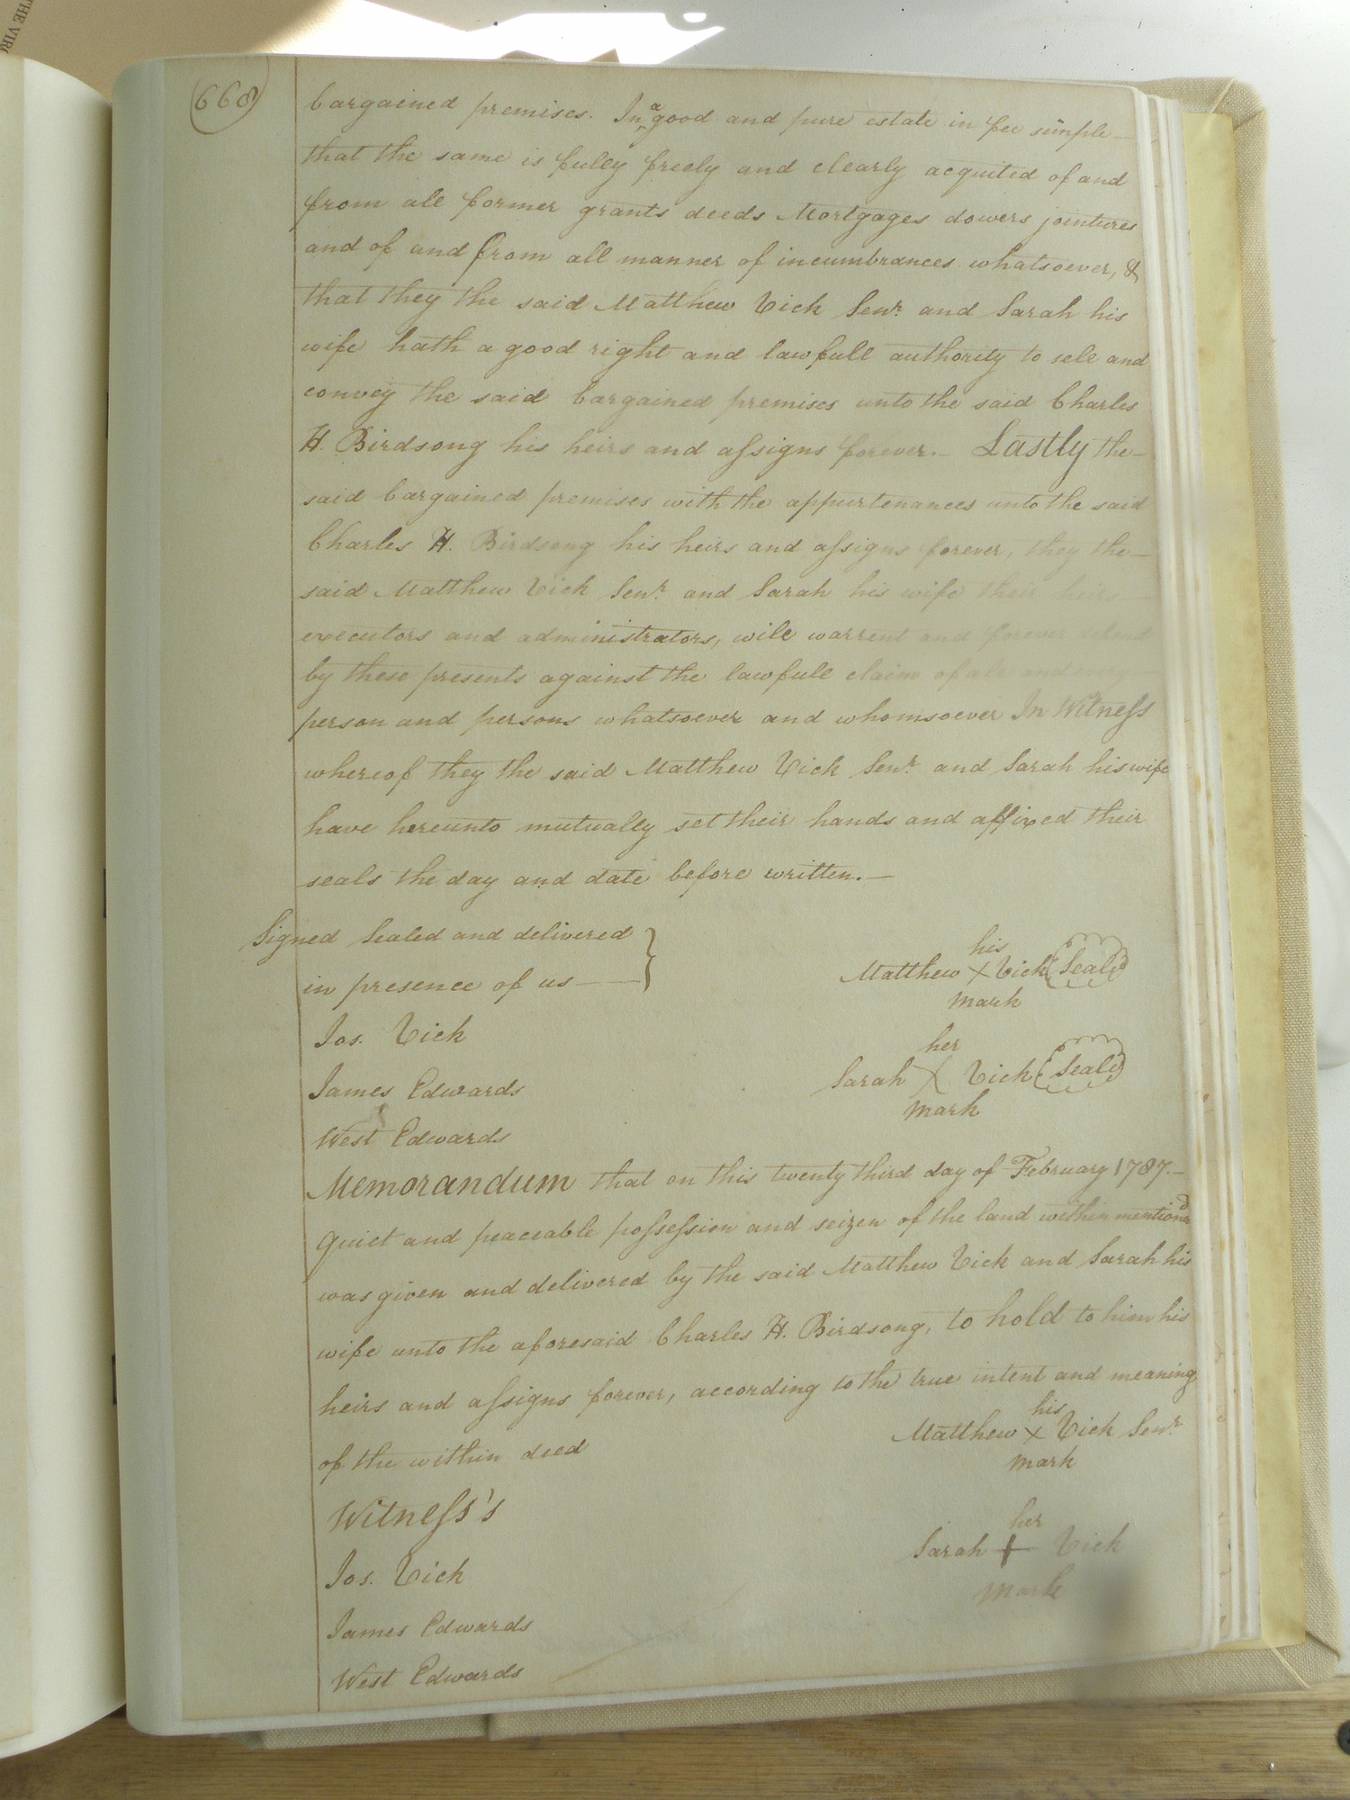 THE VIR
668
bargained premises. In a good and pure estate in fee simple
that the same is fully freely and clearly acquited of and
from all former grants deeds Mortgages dowers jointures
and of and from all manner of incumbrances whatsoever, &
that they the said Matthew Vick Senr. and Sarah his
wife hath a good right and lawfull authority to sell and
convey the said bargained premises unto the said Charles
H. Birdsong his heirs and assigns forever.— Lastly the—
said bargained premises with the appurtenances unto the said
Charles H. Birdsong his heirs and assigns forever, they the—
said Matthew Vick Senr. and Sarah his wife their heirs—
executors and administrators, will warrent and forever
by these presents against the lawfull claim of all and every
person and persons whatsoever and whomsoever In Witness
whereof they the said Matthew Vick Senr. and Sarah his wife
have hereunto mutually set their hands and affixed their
seals the day and date before written.—
Signed Sealed and delivered
in presence of us——
his
Matthew X Vick (Seal)
mark
Jos. Vick
her
Sarah X Vick (Seal)
mark
James Edwards
West Edwards
Memorandum that on this twenty third day of February 1787.—
Quiet and peaceable possession and seizen of the land within mentiond
was given and delivered by the said Matthew Vick and Sarah his
wife unto the aforesaid Charles H. Birdsong, to hold to him his
heirs and assigns forever, according to the true intent and meaning
of the within deed
his
Matthew X Vick Senr.
mark
Witness's
her
Sarah + Vick
mark
Jos. Vick
James Edwards
West Edwards